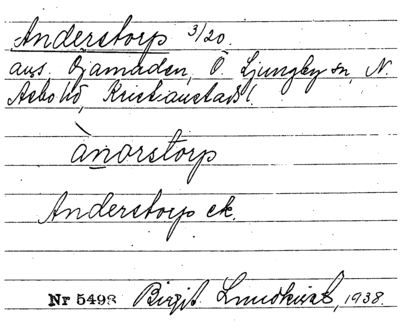 Anderstorp 3/20.
avs. Ojamaden, Ö Ljungby sn, N.
Åsbo hd, Kristianstads l.
ànorstorp
Anderstorp ek.
Nr 5498 Birgit Lundkvist, 1938.